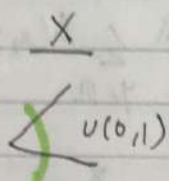 X
U(0,1)